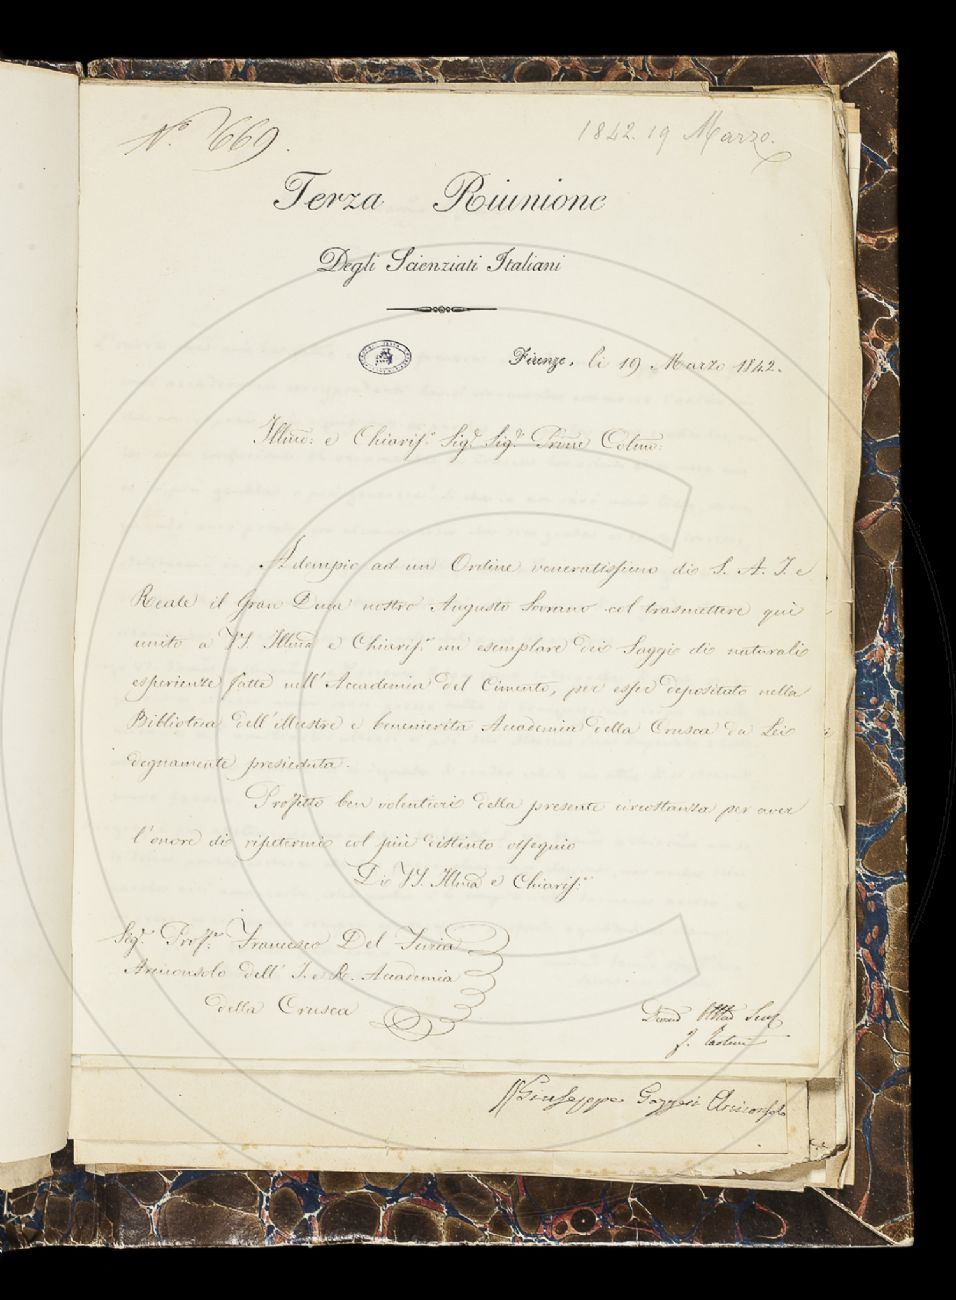 N.° 669.
1842. 19 Marzo.
Terza Riunione
Degli Scienziati Italiani
Firenze, li 19 Marzo 1842.
Illmo: e Chiariss.° Sig.r Sig.r Prone Colmo:
Adempio ad un Ordine veneratissimo di S. A. I. e
Reale il Gran Duca nostro Augusto Sovrano col trasmettere qui
unito a VS. Illma e Chiariss.a un esemplare dei Saggi di naturali
esperienze fatte nell'Accademia del Cimento, per esser depositato nella
Biblioteca dell'illustre e benemerita Accademia della Crusca da Lei
degnamente presieduta.
Profitto ben volentieri della presente circostanza per aver
l'onore di ripetermi col più distinto ossequio
Di VS. Illma e Chiariss.a
Sig.r Prof.re Francesco Del Furia
Arciconsolo dell'I. e R. Accademia
della Crusca
Giuseppe Arciconsolo